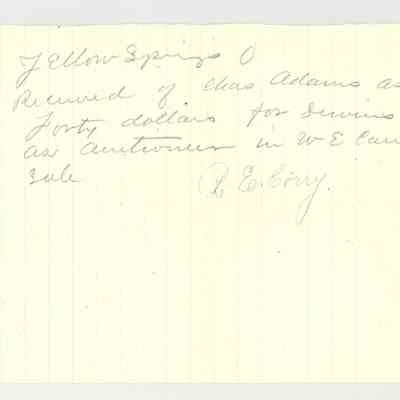 Yellow Springs O
Received of Chas Adams as
Forty dollars for Servins
as auctioneer in W E
sale
R. E. Corry.